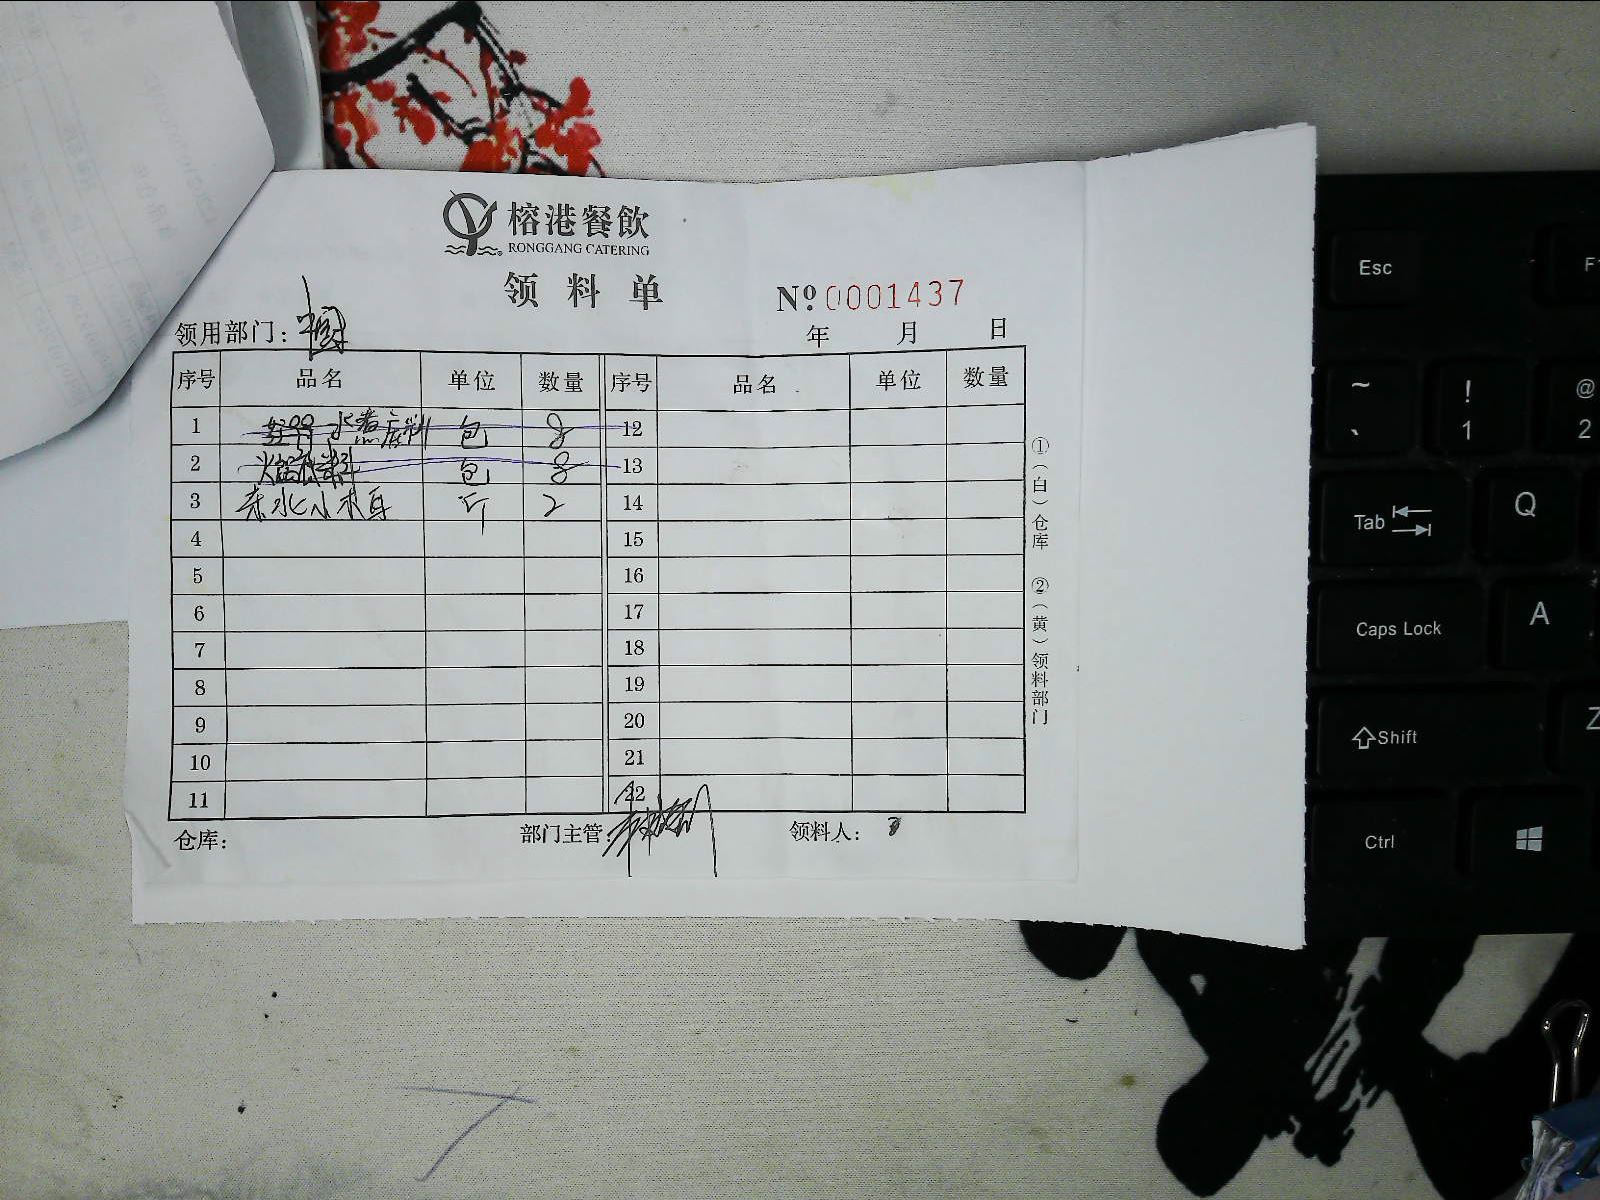 榕港餐飲
RONGGANG CATERING
领料单
№ 0001437
领用部门：中厨
年 月 日
序号 品名 单位 数量 序号 品名 单位 数量
1 水煮底料 包 8 12
2 火锅底料 包 8 13
3 东北小木耳 斤 2 14
4 15
5 16
6 17
7 18
8 19
9 20
10 21
11 22
仓库： 部门主管： 领料人：
①（白）仓库 ②（黄）领料部门
Esc
~ ! @
、 1 2
Tab Q
Caps Lock A
Shift Z
Ctrl